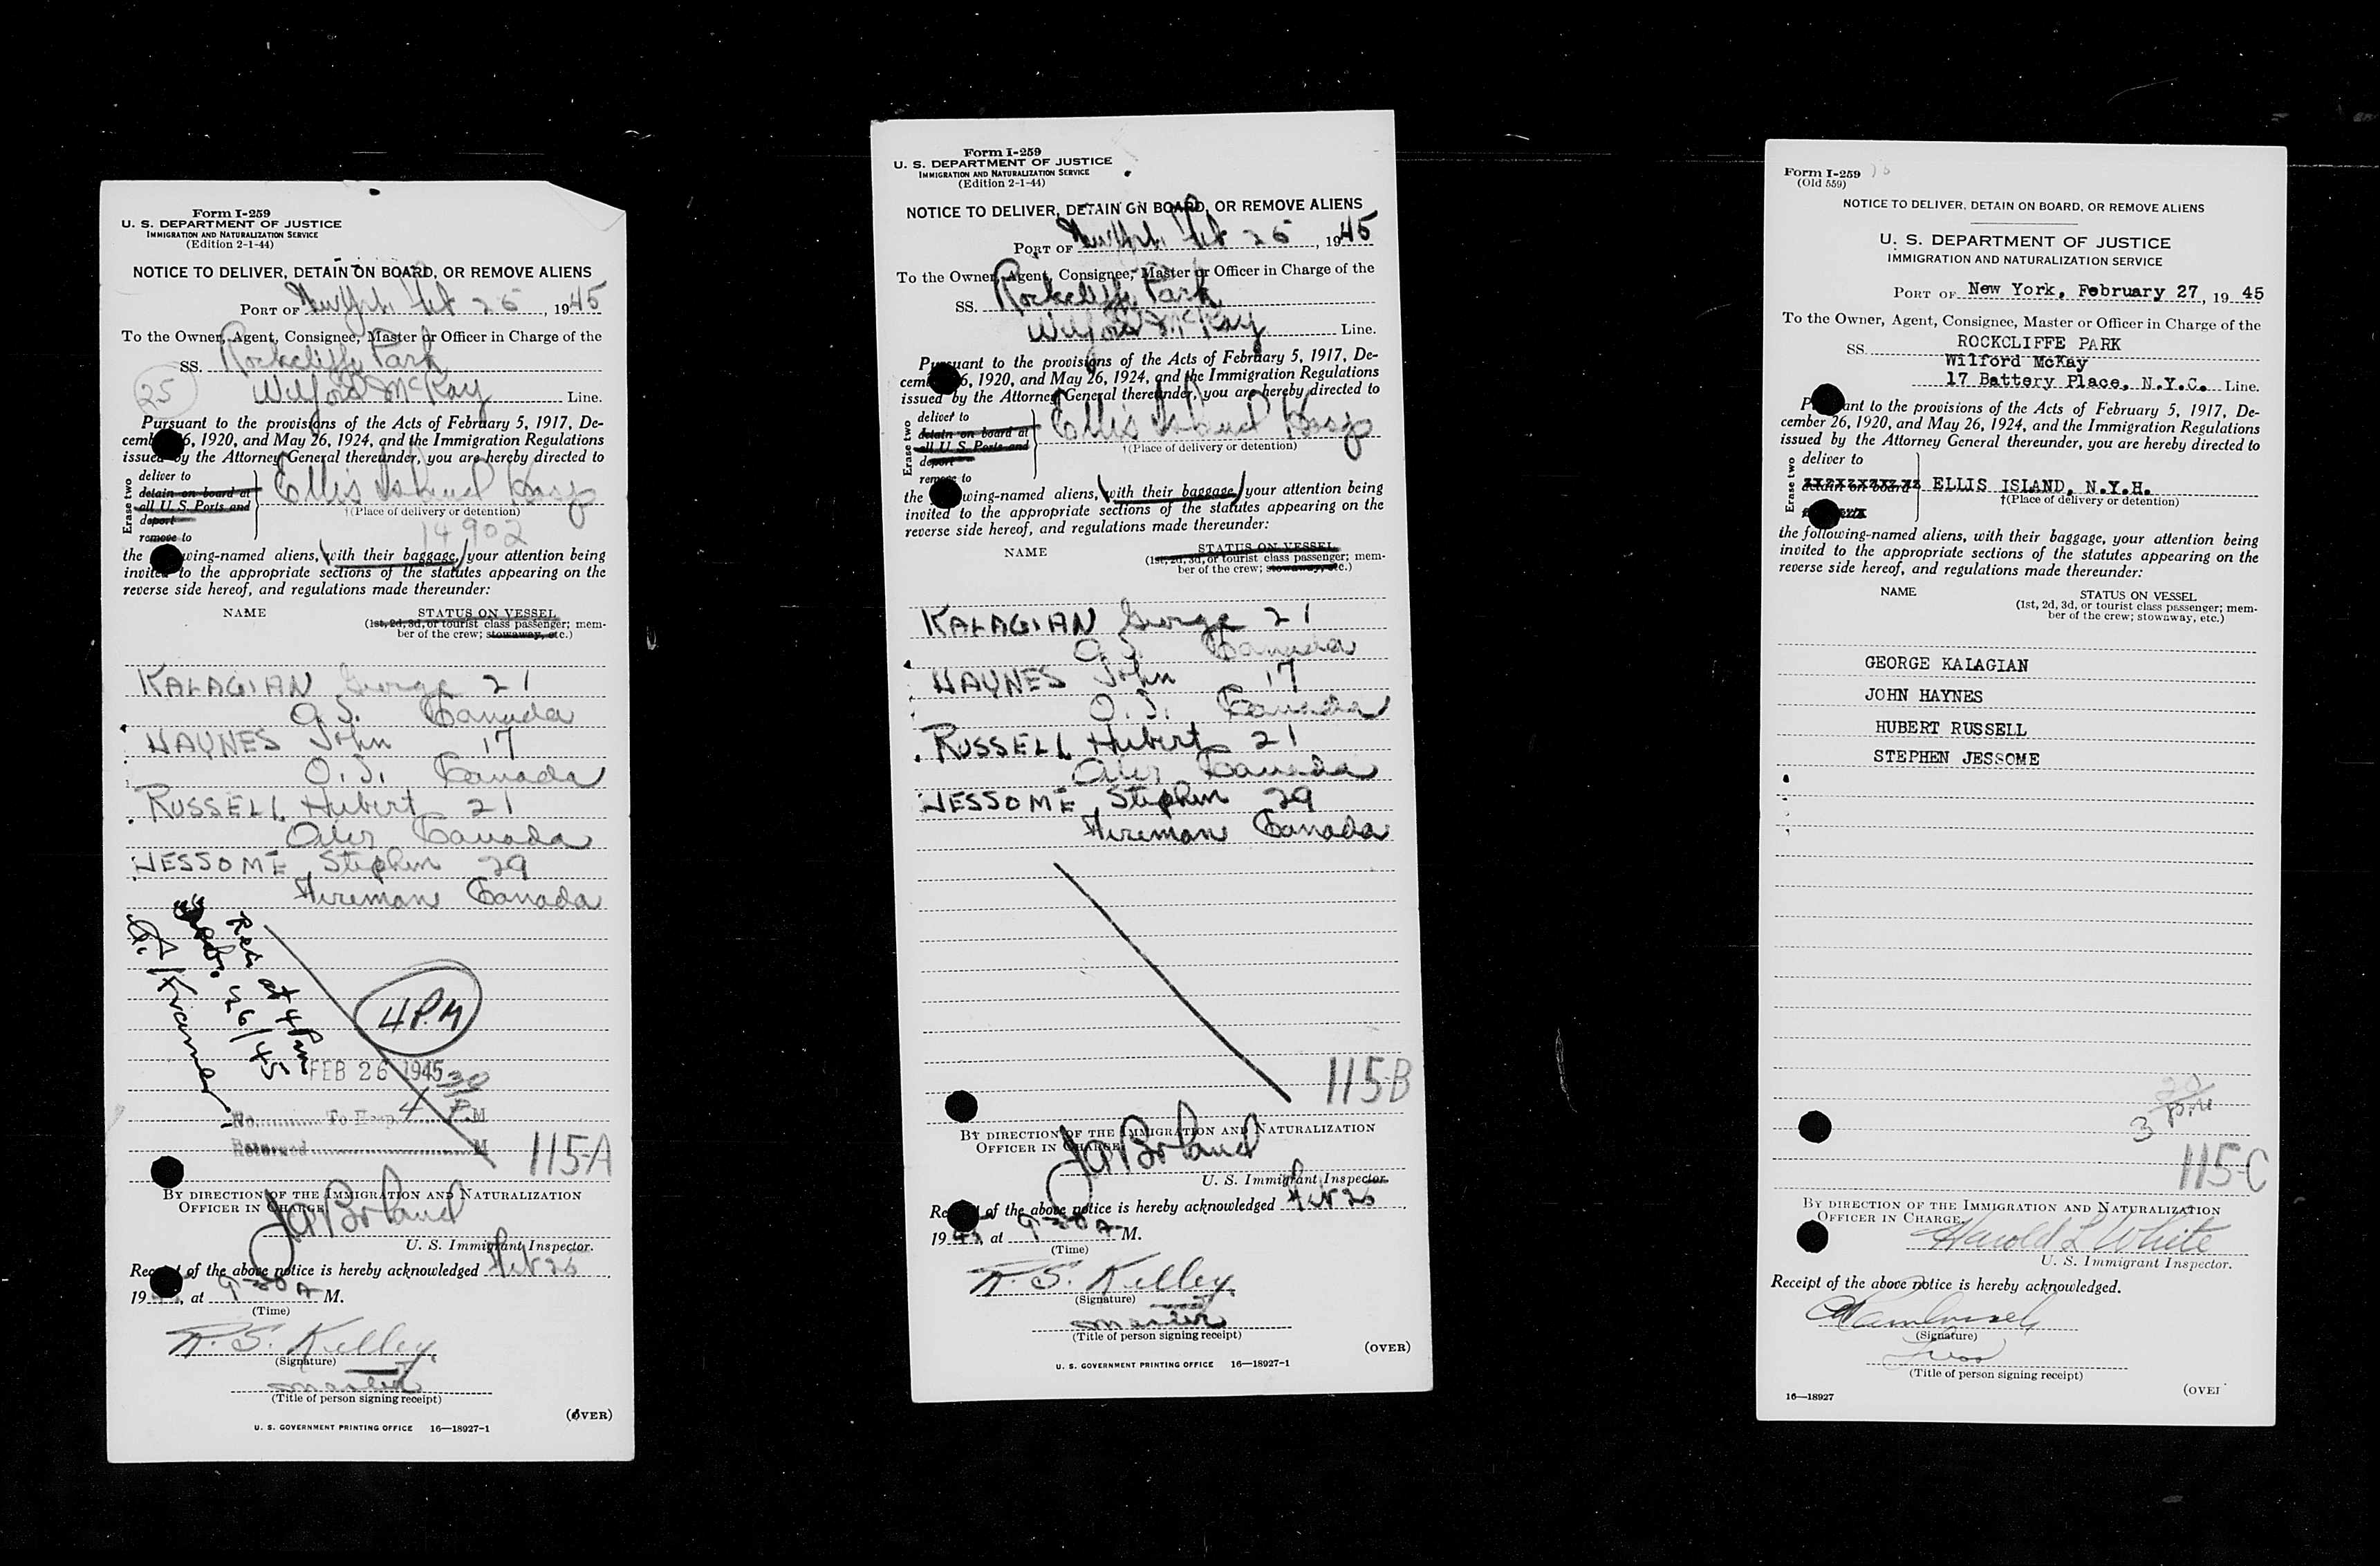 Form I-259
U. S. DEPARTMENT OF JUSTICE
IMMIGRATION AND NATURALIZATION SERVICE
(Edition 2-1-44)
NOTICE TO DELIVER, DETAIN ON BOARD, OR REMOVE ALIENS
PORT OF New York Feb 26, 1945
To the Owner, Agent, Consignee, Master or Officer in Charge of the
SS. Rockcliffe Park
25
Wilford McKay Line.
Pursuant to the provisions of the Acts of February 5, 1917, De-
cem 6, 1920, and May 26, 1924, and the Immigration Regulations
issued by the Attorney General thereunder, you are hereby directed to
Erase two
deliver to
detain on board at
all U. S. Ports and
deport
remove to
Ellis Island Hosp
†(Place of delivery or detention)
14902
the wing-named aliens, (with their baggage,) your attention being
invited to the appropriate sections of the statutes appearing on the
reverse side hereof, and regulations made thereunder:
NAME STATUS ON VESSEL
(1st, 2d, 3d, or tourist class passenger; mem-
ber of the crew; stowaway, etc.)
KALAGIAN George 21
O.S. Canada
HAYNES John 17
O.S. Canada
RUSSELL Hubert 21
Oiler Canada
JESSOME Stephen 29
Fireman Canada
Rec at 4 Pm
26/45
4 P.M
FEB 26 1945
4 30 P.M
No. To Hosp.
Returned M
115-A
BY DIRECTION OF THE IMMIGRATION AND NATURALIZATION
OFFICER IN CHARGE.
JA Borland
U. S. Immigrant Inspector.
Receipt of the above notice is hereby acknowledged Feb 26,
19, at 9-30 A M.
(Time)
R. S. Kelley
(Signature)
master
(Title of person signing receipt)
(OVER)
U. S. GOVERNMENT PRINTING OFFICE 16—18927-1
Form I-259
U. S. DEPARTMENT OF JUSTICE
IMMIGRATION AND NATURALIZATION SERVICE
(Edition 2-1-44)
NOTICE TO DELIVER, DETAIN ON BOARD, OR REMOVE ALIENS
PORT OF New York Feb 26, 1945
To the Owner, Agent, Consignee, Master or Officer in Charge of the
SS. Rockcliffe Park
Wilford McKay Line.
Pursuant to the provisions of the Acts of February 5, 1917, De-
cem 6, 1920, and May 26, 1924, and the Immigration Regulations
issued by the Attorney General thereunder, you are hereby directed to
Erase two
deliver to
detain on board at
all U. S. Ports and
deport
remove to
Ellis Island Hosp
†(Place of delivery or detention)
the wing-named aliens, (with their baggage,) your attention being
invited to the appropriate sections of the statutes appearing on the
reverse side hereof, and regulations made thereunder:
NAME STATUS ON VESSEL
(1st, 2d, 3d, or tourist class passenger; mem-
ber of the crew; stowaway, etc.)
KALAGIAN George 21
O.S. Canada
HAYNES John 17
O.S. Canada
RUSSELL Hubert 21
Oiler Canada
JESSOME Stephen 29
Fireman Canada
115-B
BY DIRECTION OF THE IMMIGRATION AND NATURALIZATION
OFFICER IN CHARGE.
JA Borland
U. S. Immigrant Inspector.
Receipt of the above notice is hereby acknowledged Feb 26,
1945, at 9-30 A M.
(Time)
R. S. Kelley
(Signature)
master
(Title of person signing receipt)
(OVER)
U. S. GOVERNMENT PRINTING OFFICE 16—18927-1
Form I-259
(Old 559)
NOTICE TO DELIVER, DETAIN ON BOARD, OR REMOVE ALIENS
U. S. DEPARTMENT OF JUSTICE
IMMIGRATION AND NATURALIZATION SERVICE
PORT OF New York, February 27, 1945
To the Owner, Agent, Consignee, Master or Officer in Charge of the
SS. ROCKCLIFFE PARK
Wilford McKay
17 Battery Place, N.Y.C. Line.
P ant to the provisions of the Acts of February 5, 1917, De-
cember 26, 1920, and May 26, 1924, and the Immigration Regulations
issued by the Attorney General thereunder, you are hereby directed to
Erase two
deliver to
detain on board
ELLIS ISLAND, N.Y.H.
†(Place of delivery or detention)
the following-named aliens, with their baggage, your attention being
invited to the appropriate sections of the statutes appearing on the
reverse side hereof, and regulations made thereunder:
NAME STATUS ON VESSEL
(1st, 2d, 3d, or tourist class passenger; mem-
ber of the crew; stowaway, etc.)
GEORGE KALAGIAN
JOHN HAYNES
HUBERT RUSSELL
STEPHEN JESSOME
3 20 P.M
115-C
BY DIRECTION OF THE IMMIGRATION AND NATURALIZATION
OFFICER IN CHARGE.
Harold L White
U. S. Immigrant Inspector.
Receipt of the above notice is hereby acknowledged.
(Signature)
(Title of person signing receipt)
16—18927
(OVER